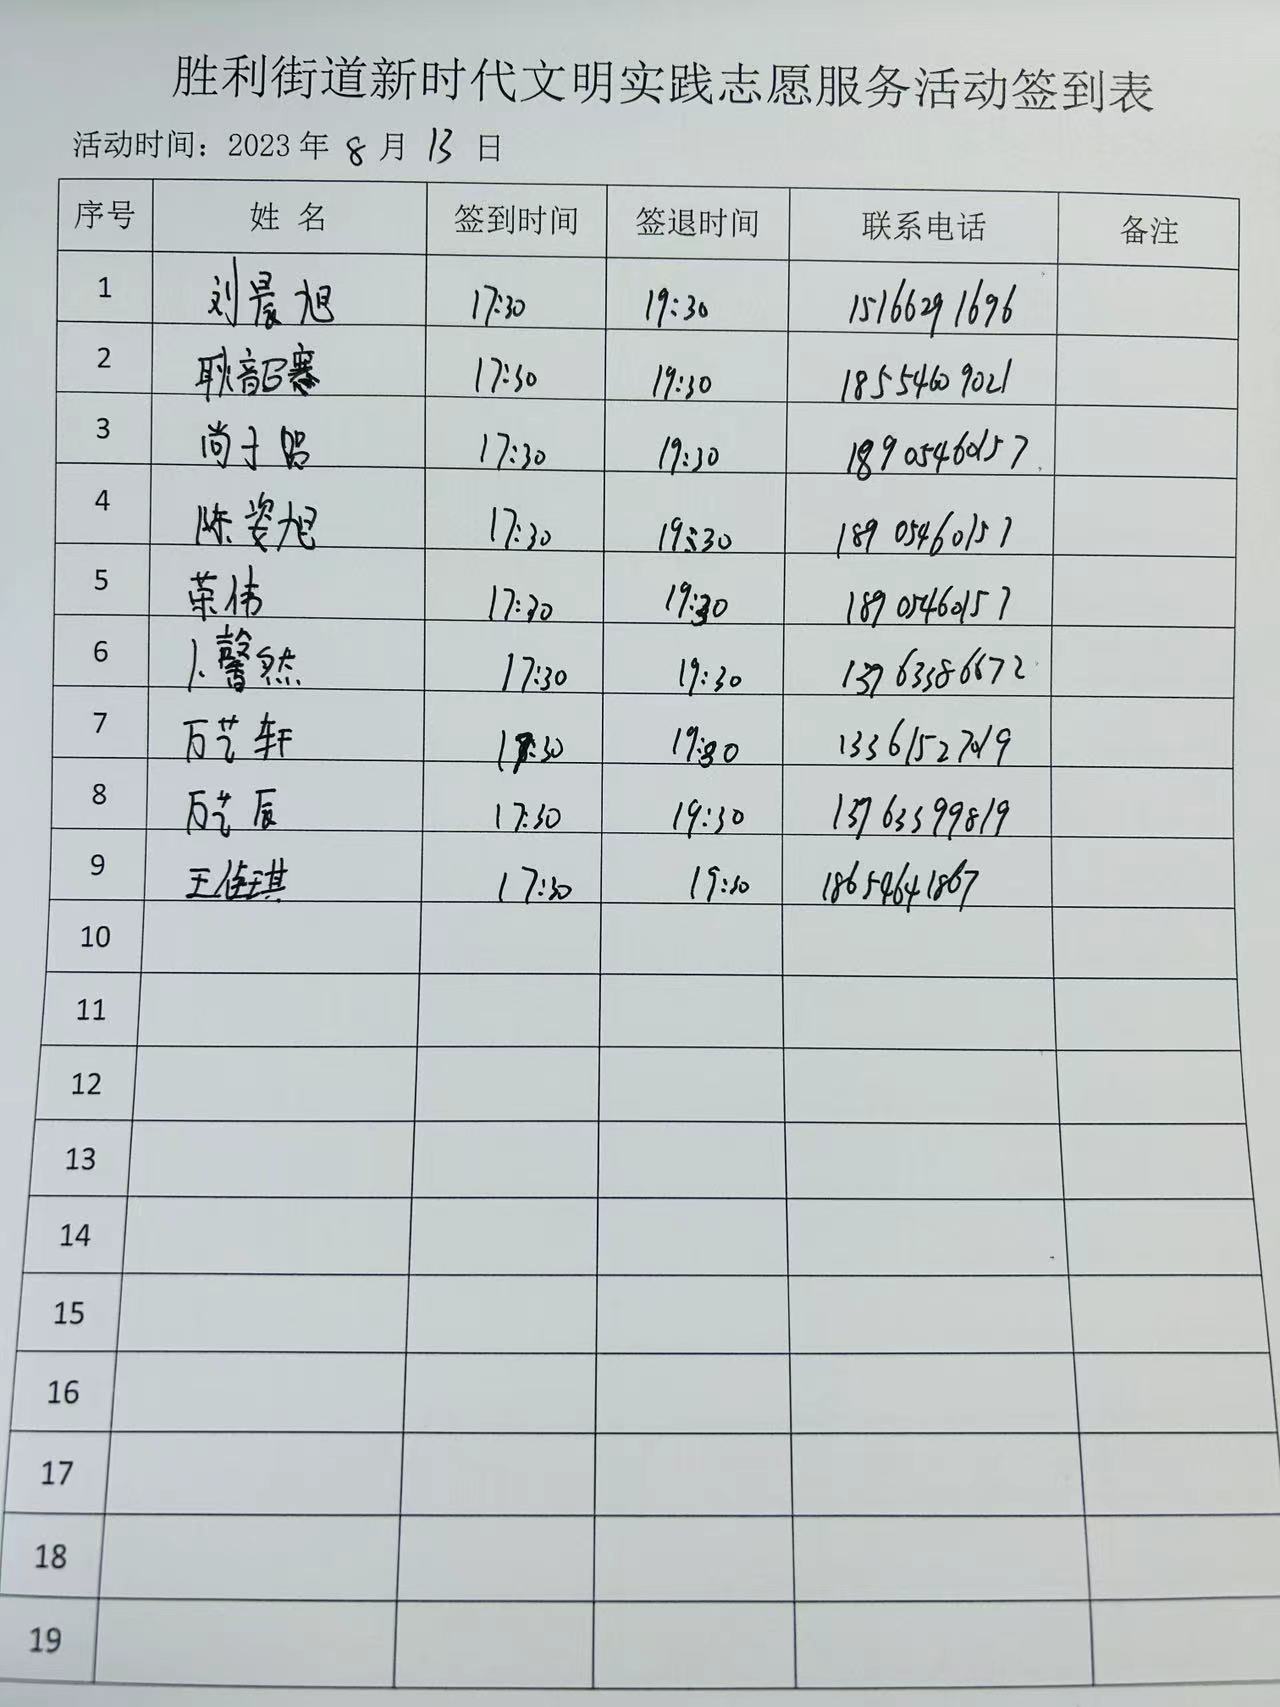 胜利街道新时代文明实践志愿服务活动签到表
活动时间：2023 年 8 月 13 日
序号 姓 名 签到时间 签退时间 联系电话 备注
1 刘晨旭 17:30 19:30 15166291696
2 耿韶寒 17:30 19:30 18554609021
3 尚于 17:30 19:30 18905460157
4 陈姿旭 17:30 19:30 18905460157
5 荣伟 17:30 19:30 18905460157
6 卜馨然 17:30 19:30 13763386672
7 万艺轩 17:30 19:30 13361527019
8 万艺辰 17:30 19:30 13763599819
9 王佳琪 17:30 19:30 18654641867
10
11
12
13
14
15
16
17
18
19